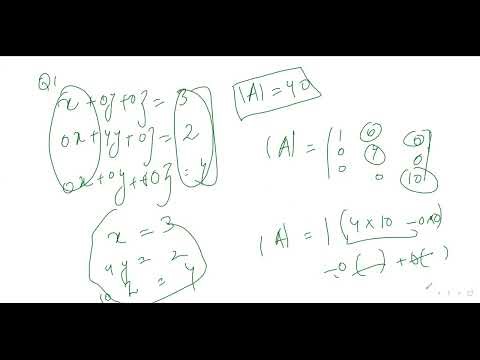 Q1
x + 0y + 0z = 3
0x + 4y + 0z = 2
0x + 0y + 10z = 4
x = 3
4y = 2
10 z = 4
|A| = 40
|A| = | 1 0 0
0 4 0
0 0 10 |
|A| = 1 (4 × 10 - 0×0)
-0 ( ) + 0 ( )